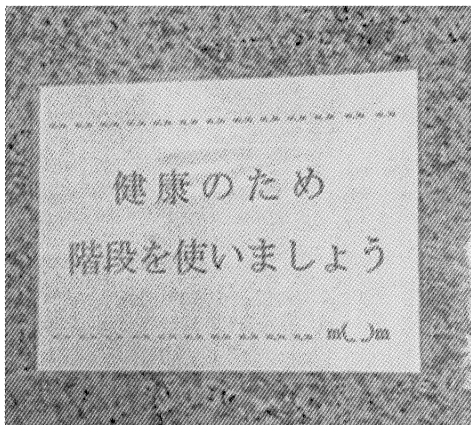 健康のため
階段を使いましょう
m(_ _)m